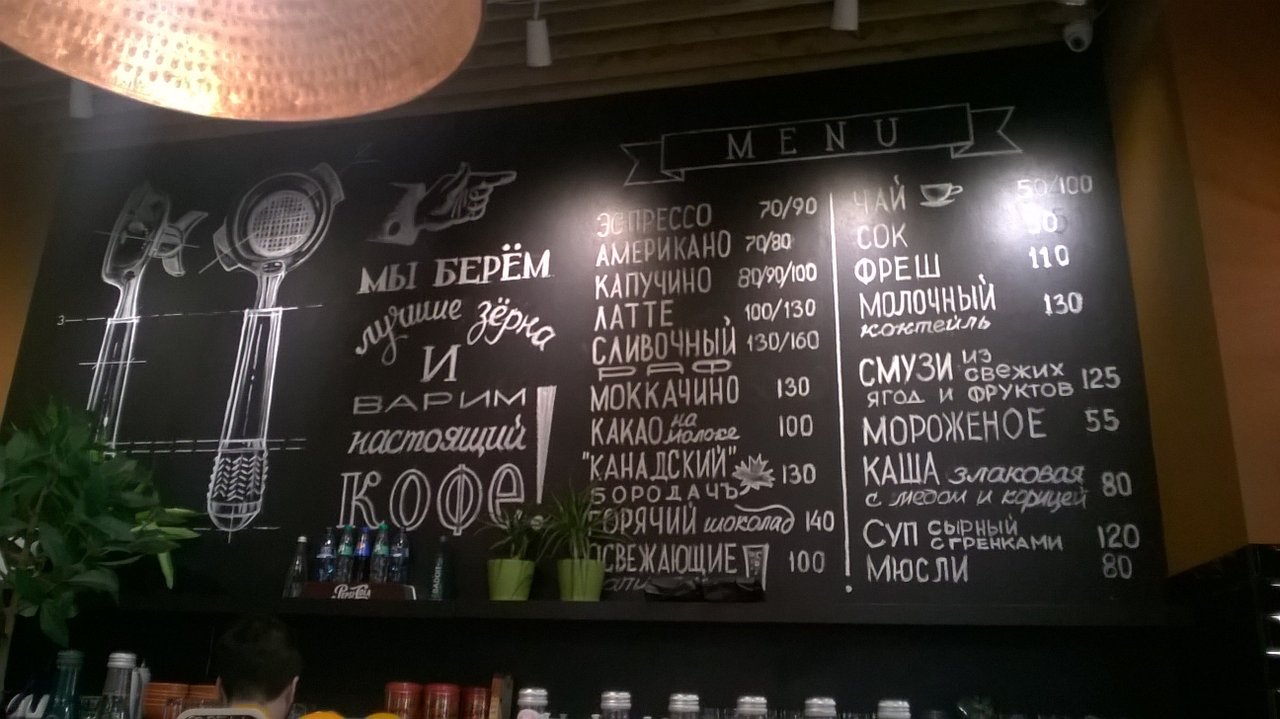 МЫ БЕРЁМ
лучшие зёрна
И
ВАРИМ
настоящий
КОФЕ!
MENU
ЭСПРЕССО 70/90
АМЕРИКАНО 70/80
КАПУЧИНО 80/90/100
ЛАТТЕ 100/130
СЛИВОЧНЫЙ 130/160
РАФ
МОККАЧИНО 130
КАКАО на молоке 100
"КАНАДСКИЙ" 130
БОРОДАЧЪ
ГОРЯЧИЙ шоколад 140
ОСВЕЖАЮЩИЕ 100
ЧАЙ 50/100
СОК
ФРЕШ 110
МОЛОЧНЫЙ 130
коктейль
СМУЗИ ИЗ СВЕЖИХ
ЯГОД И ФРУКТОВ 125
МОРОЖЕНОЕ 55
КАША злаковая
с медом и корицей 80
СУП СЫРНЫЙ
С ГРЕНКАМИ 120
МЮСЛИ 80
3
Pepsi-Cola